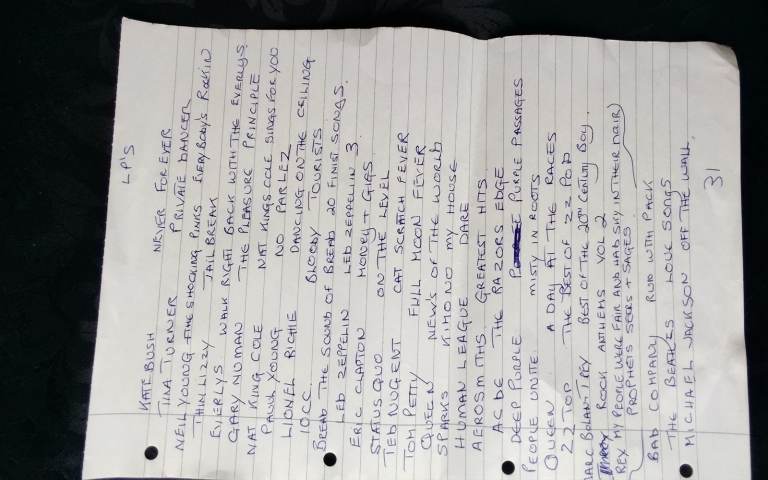 LP'S
KATE BUSH NEVER FOR EVER
TINA TURNER PRIVATE DANCER
NEIL YOUNG THE SHOCKING PINKS EVERYBODY'S ROCKIN
THIN LIZZY JAILBREAK
EVERLYS WALK RIGHT BACK WITH THE EVERLYS
GARY NUMAN THE PLEASURE PRINCIPLE
NAT KING COLE NAT KINGS COLE SINGS FOR YOU
PAUL YOUNG NO PARLEZ
LIONEL RICHIE DANCING ON THE CEILING
10CC. BLOODY TOURISTS
BREAD THE SOUND OF BREAD 20 FINIST SONGS.
LED ZEPPELIN LED ZEPPELIN 3
ERIC CLAPTON MONEY + GIGS
STATUS QUO ON THE LEVEL
TED NUGENT CAT SCRATCH FEVER
TOM PETTY FULL MOON FEVER
QUEEN NEWS OF THE WORLD
SPARKS KIMONO MY HOUSE
HUMAN LEAGUE DARE
AEROSMITHS GREATEST HITS
AC DC THE RAZORS EDGE
DEEP PURPLE PURPLE PASSAGES
PEOPLE UNITE MISTY IN ROOTS
QUEEN A DAY AT THE RACES
ZZ TOP THE BEST OF ZZ POP
MARC BOLAN T REX BEST OF THE 20TH CENTURY BOY.
ROCK ANTHEMS VOL 2
REX MY PEOPLE WERE FAIR AND HAD SKY IN THEIR HAIR)
PROPHETS SEERS + SAGES
BAD COMPANY RUN WITH PACK
THE BEATLES LOVE SONGS
MICHAEL JACKSON OFF THE WALL.
31